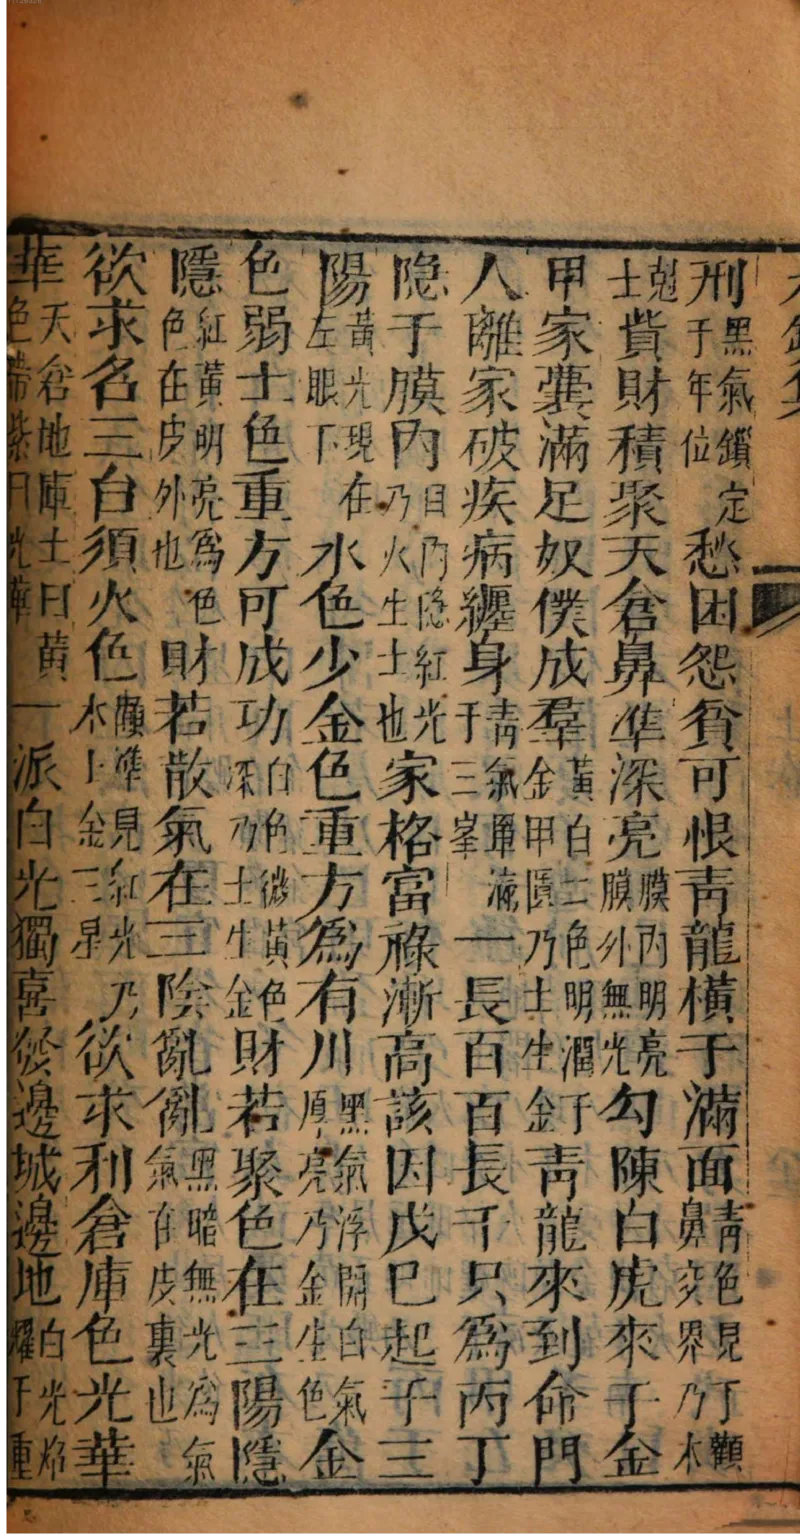 刑黑氣鎖定于年位愁困怨貧可恨靑龍橫于滿面靑色見丁顴鼻交界乃木
尅士貲財積聚天倉鼻準深亮膜內明亮膜外無光勾陳白虎來于金
甲家囊滿足奴僕成羣黃白二色明潤于金甲匱乃土生金靑龍來到命門
人離家破疾病纏身靑氣罩滿于三峯一長百百長千只爲丙丁
隐于膜內目內隐紅光乃火生土也家格富祿漸高該因戊巳起于三
陽黃光現在左眼下水色少金色重方爲有川黑氣浮開白氣厚亮乃金生色金
色弱土色重方可成功白色微黃色深乃土生金財若聚色在三陽隱
隱紅黃明亮爲色色在皮外也財若散氣在三陰亂亂黑暗無光爲氣氣在皮裏也
欲求名三台須火色顴準見紅光乃木上金三星欲求利倉庫色光華
華天倉地庫土曰黃色帶紫曰光華一派白光獨喜發邊城邊地白光焰耀于重